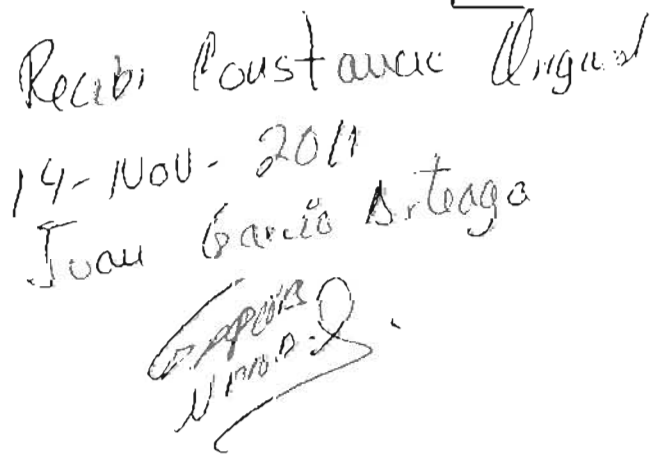 Recibi Constancia Original
14-Nov-2011
Juan García Arteaga
García